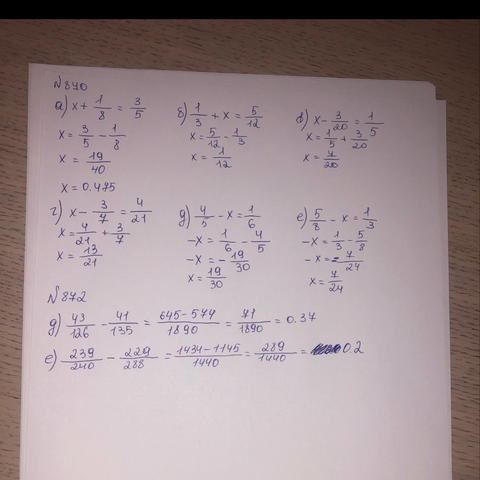 N 870
а) x + 1/8 = 3/5
x = 3/5 - 1/8
x = 19/40
x = 0.475
б) 1/3 + x = 5/12
x = 5/12 - 1/3
x = 1/12
в) x - 3/20 = 1/5
x = 1/5 + 3/20
x = 7/20
г) x - 3/7 = 4/21
x = 4/21 + 3/7
x = 13/21
д) 4/5 - x = 1/6
-x = 1/6 - 4/5
-x = - 19/30
x = 19/30
е) 5/8 - x = 1/3
-x = 1/3 - 5/8
-x = - 7/24
x = 7/24
N 872
д) 43/126 - 41/135 = 645-574/1890 = 71/1890 = 0.37
е) 239/240 - 229/288 = 1434-1145/1440 = 289/1440 = 0.2